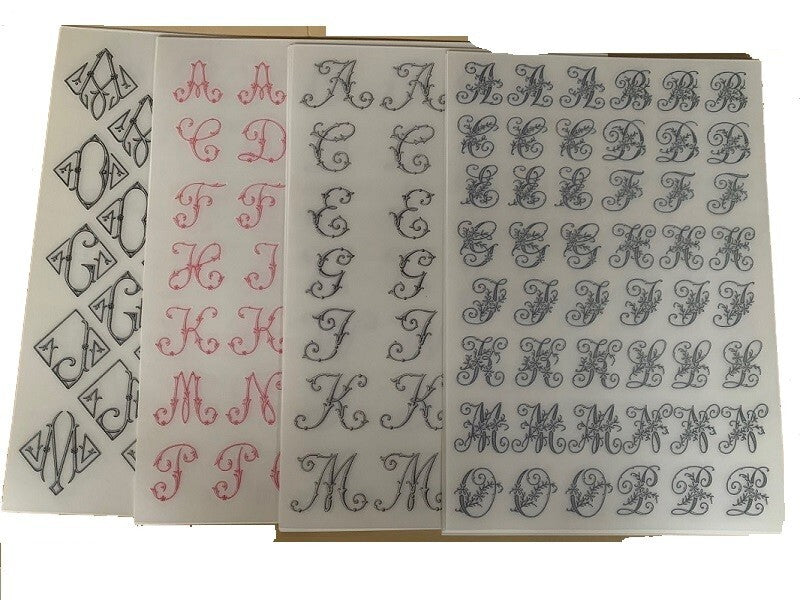 A
A
O
G
G
J
J
M
A A
C D
F F
H I
K K
M N
P P
A A
C C
E E
G G
K K
M M
A A A B B B
C C C D D D
E E E F F F
G G G H H H
I I I J J J
K K K L L L
M M M N N N
O O O P P P